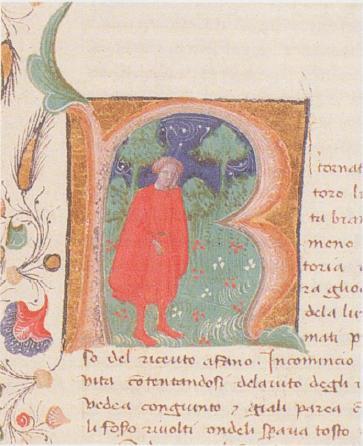 R
itornat
toro l
ta bra
meno
toria
ra glio
dela lu
mati p
so del riceuto afano. Incomincio
uita cōtentandosi delaiuto degli
vedea congiunto 7 quali parea
li foſſo riuolti ondeli ſpaua tosto